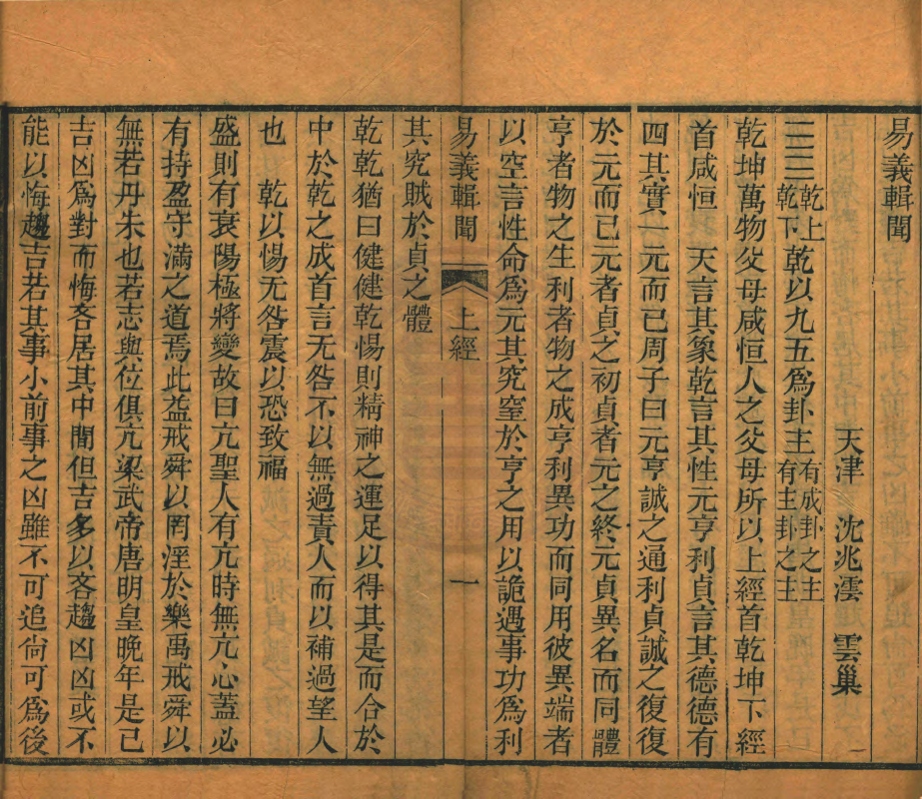 易義輯聞
天津　沈兆澐　雲巢
䷀乾上乾下　乾以九五爲卦主有成卦之主有主卦之主
乾坤萬物父母咸恒人之父母所以上經首乾坤下經
首咸恒　天言其象乾言其性元亨利貞言其德德有
四其實一元而已周子曰元亨誠之通利貞誠之復復
於元而已元者貞之初貞者元之終元貞異名而同體
亨者物之生利者物之成亨利異功而同用彼異端者
以空言性命爲元其究窒於亨之用以詭遇事功爲利
易義輯聞　上經　一
其究賊於貞之體
乾乾猶曰健健乾惕則精神之運足以得其是而合於
中於乾之成首言无咎不以無過責人而以補過望人
也　乾以惕无咎震以恐致福
盛則有衰陽極將變故曰亢聖人有亢時無亢心蓋必
有持盈守滿之道焉此益戒舜以罔淫於樂禹戒舜以
無若丹朱也若志與位俱亢梁武帝唐明皇晚年是已
吉凶爲對而悔吝居其中間但吉多以吝趨凶凶或不
能以悔趨吉若其事小前事之凶雖不可追尙可爲後